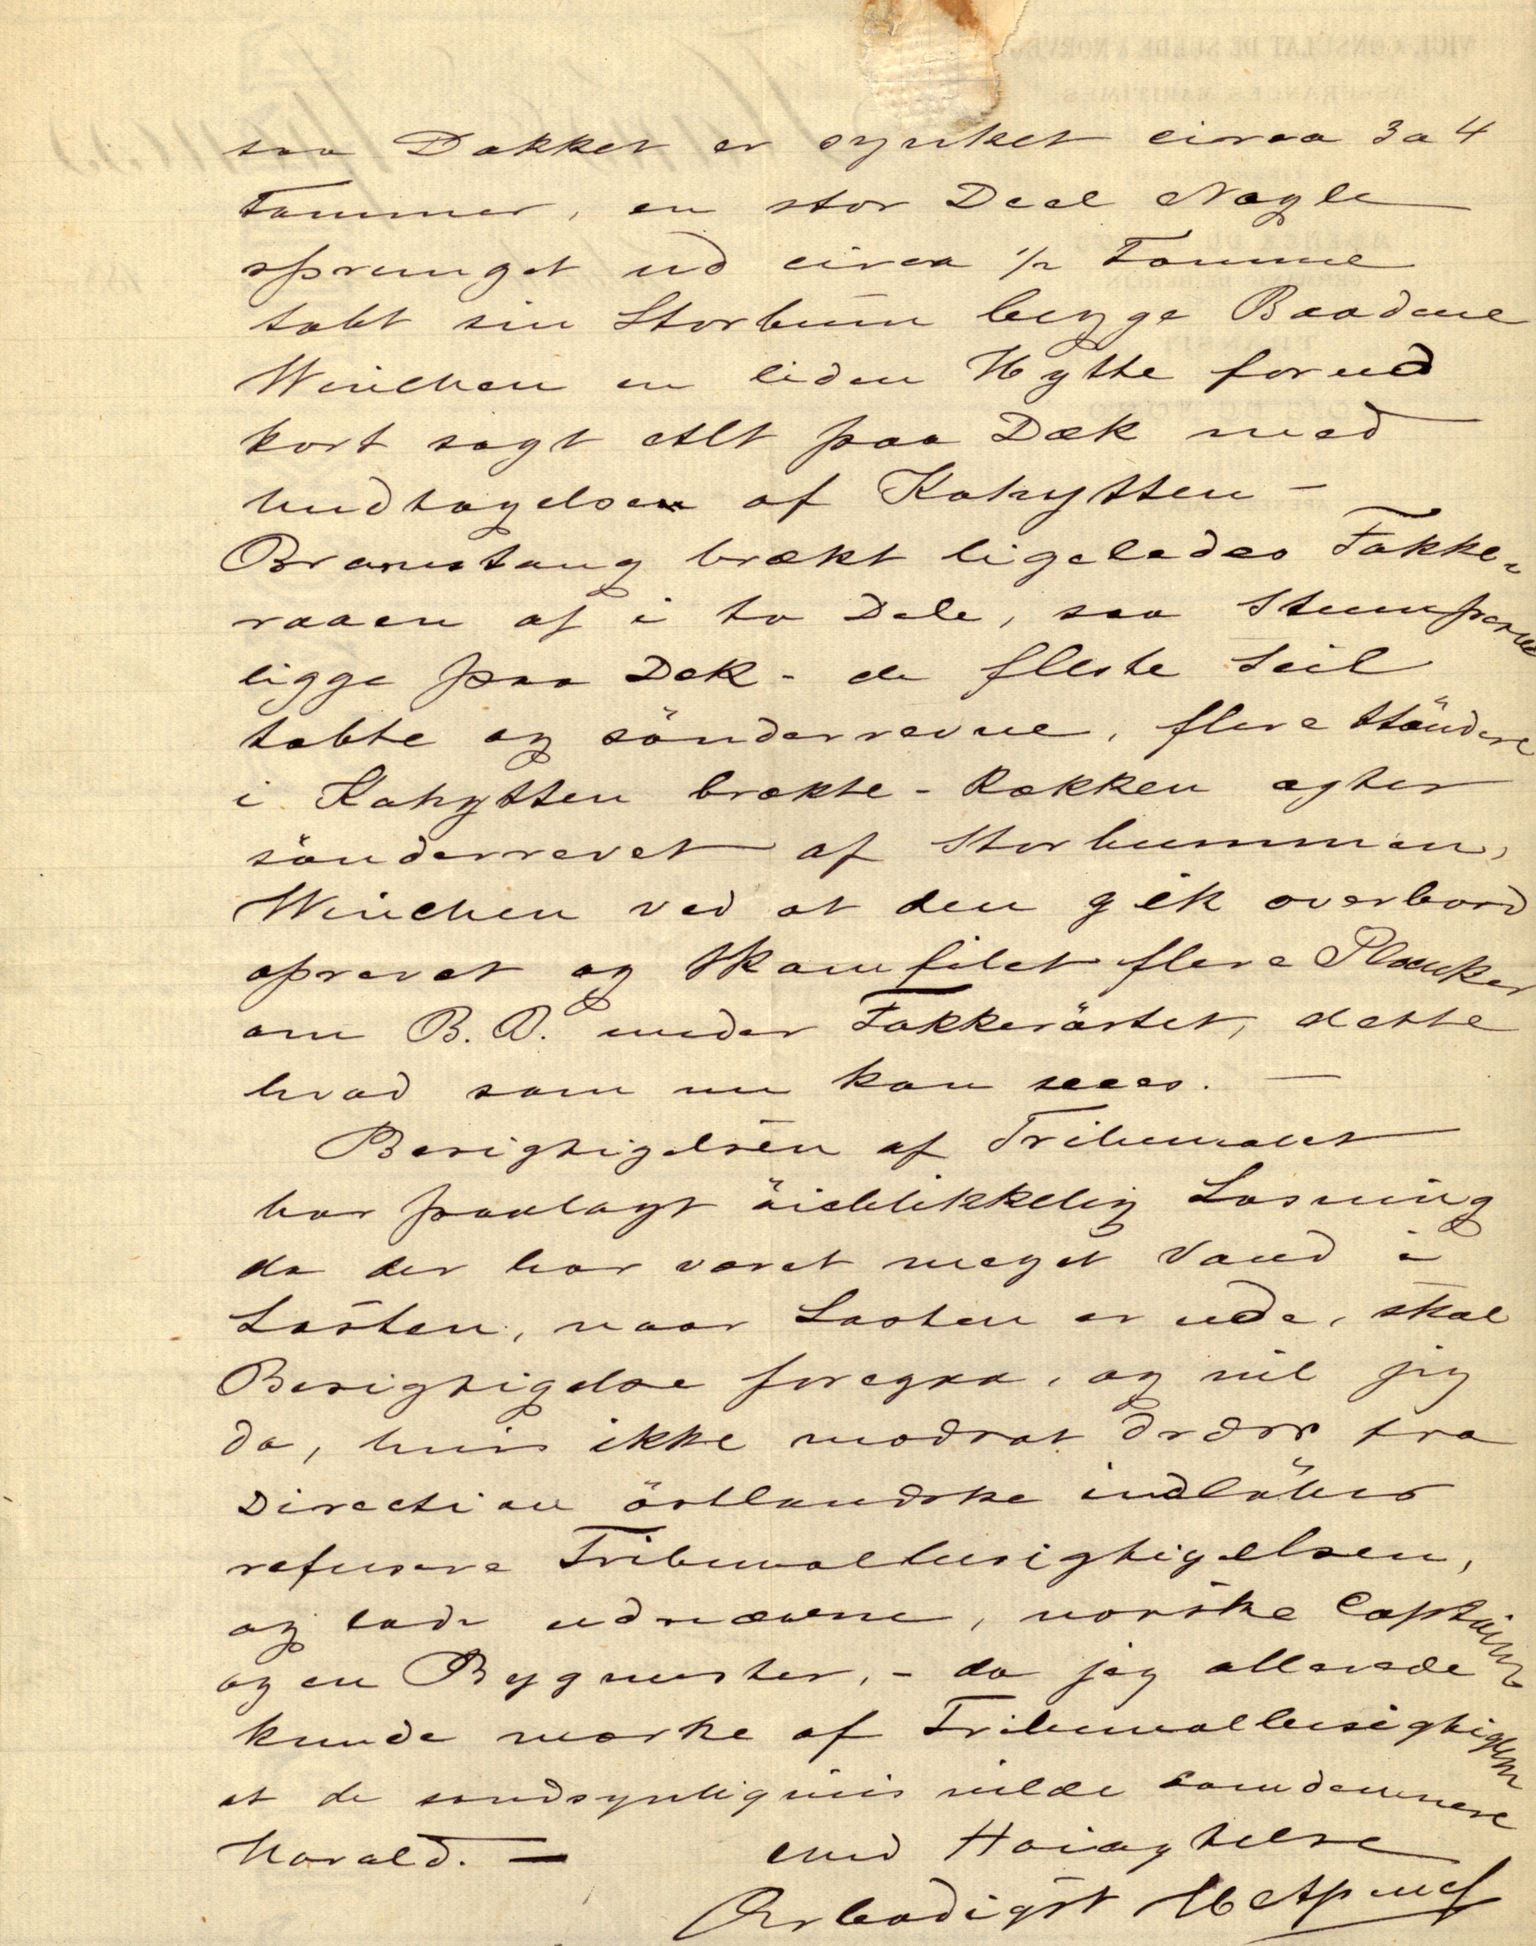 saa Dækket er synket circa 3 a 4
Tommer, en stor Deel Nagle
sprunget ud circa 1/2 Tomme
tabt sin Storbum begge Baadene
Winchen en liden Hytte forud
kort sagt Alt paa Dæk med
Undtagelsen af Kahytten –
Bramstang brækt ligeledes Fokke-
raaen af i to Dele, saa Stumperne
ligge paa Dæk - de fleste Seil
tabte og sönderrevne, flere Ständere
i Kahytten brækte - Rækken agter
sönderrevet af Storbummen,
Winchen ved at den gik overbord
oprevet og skamfilet flere Planker
om B.B. under Fokkeröstet, dette
hvad som nu kan sees. –
Besigtigelsen af Tribunalet
har paalagt öieblikkelig Losning
da der har været meget Vand i
Lasten, naar Lasten er ude, skal
Besigtigelse foregaa, og vil jeg
da, hvis ikke modsat Ordre fra
Direction östlandske indlöber
refusere Tribunalbesigtigelsen,
og lade udnævne, norske Captainer
og en Bygmester, - da jeg allerede
kunde mærke af Tribunalbesigtigelsen
at de sandsynligviis vilde condemnere
Harald. –
med Høiagtelse
Ærbødigst